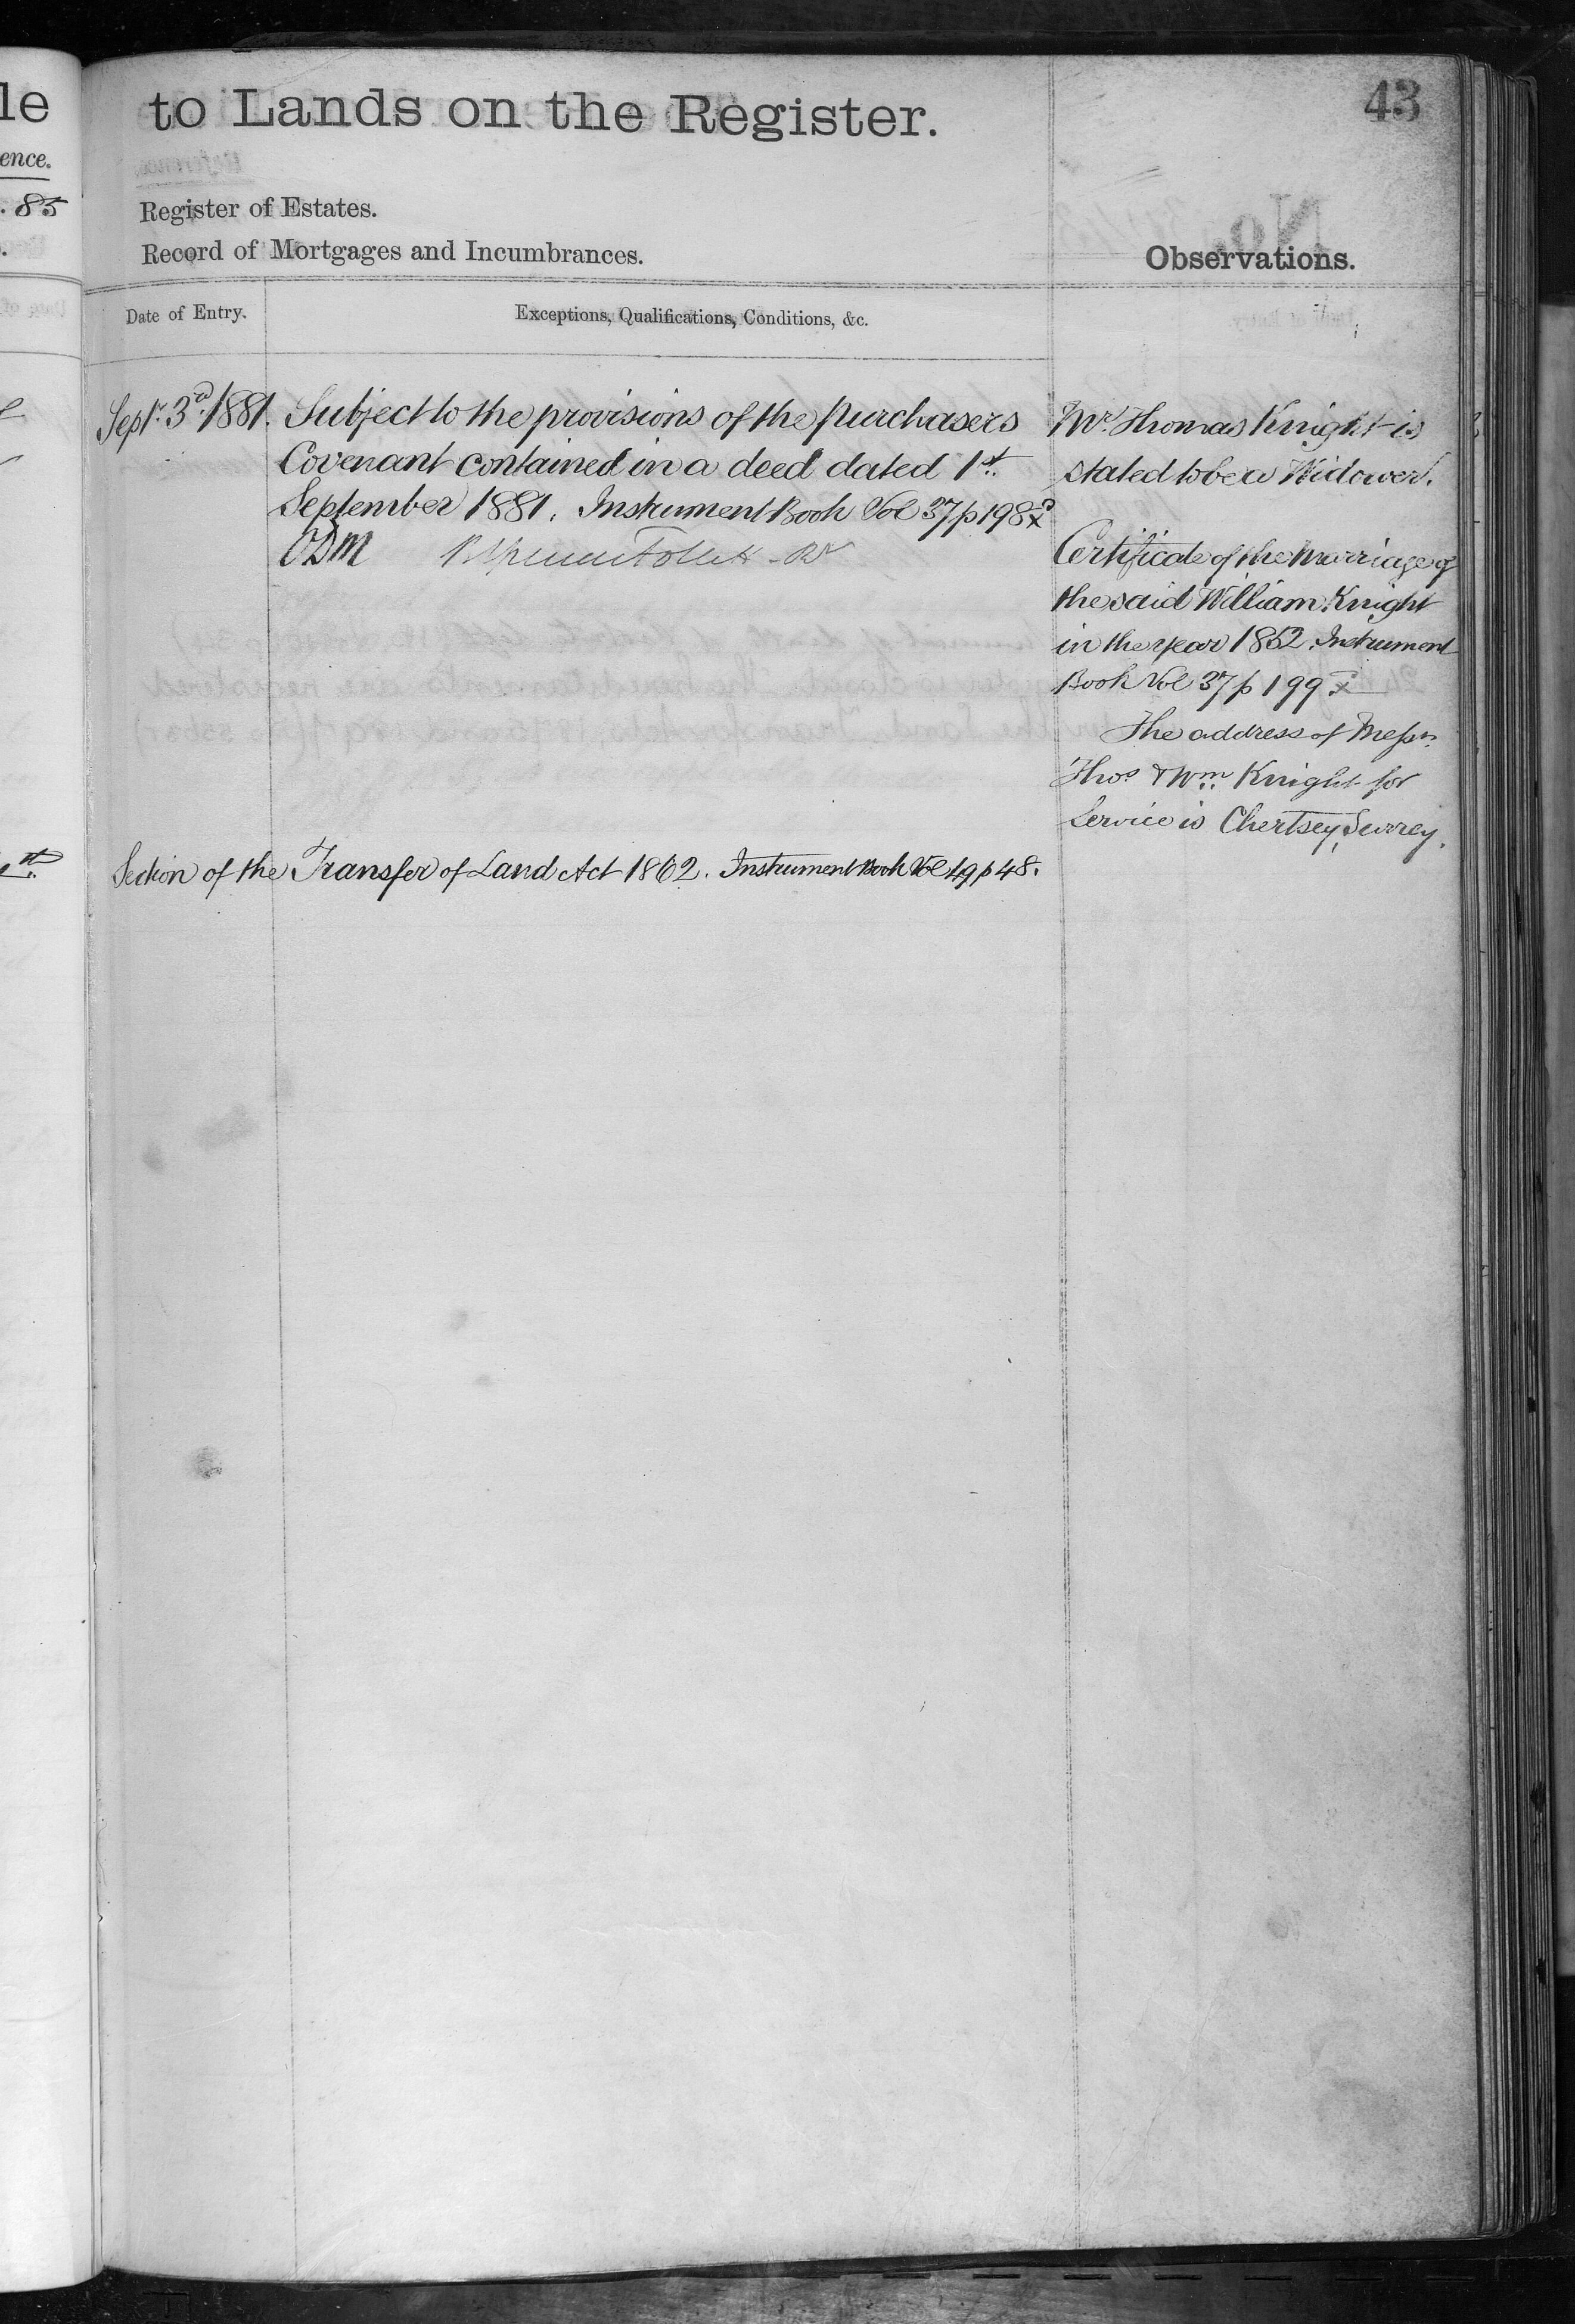 le
ence.
. 85
to Lands on the Register.
43
Register of Estates.
Record of Mortgages and Incumbrances.
Observations.
Date of Entry.
Exceptions, Qualifications, Conditions, &c.
Septr. 3d. 1881. Subject to the provisions of the purchasers
Covenant contained in a deed dated 1st.
September 1881. Instrument Book Vol 37 p 198
ODM
Mr. Thomas Knight is
stated to be a Widower.
Certificate of the Marriage of
the said William Knight
in the year 1852. Instrument
Book Vol 37 p 199
The address of Messrs.
Thos & Wm. Knight for
Service is Chertsey, Surrey.
Section of the Transfer of Land Act 1862. Instrument Book Vol 49 p 48.